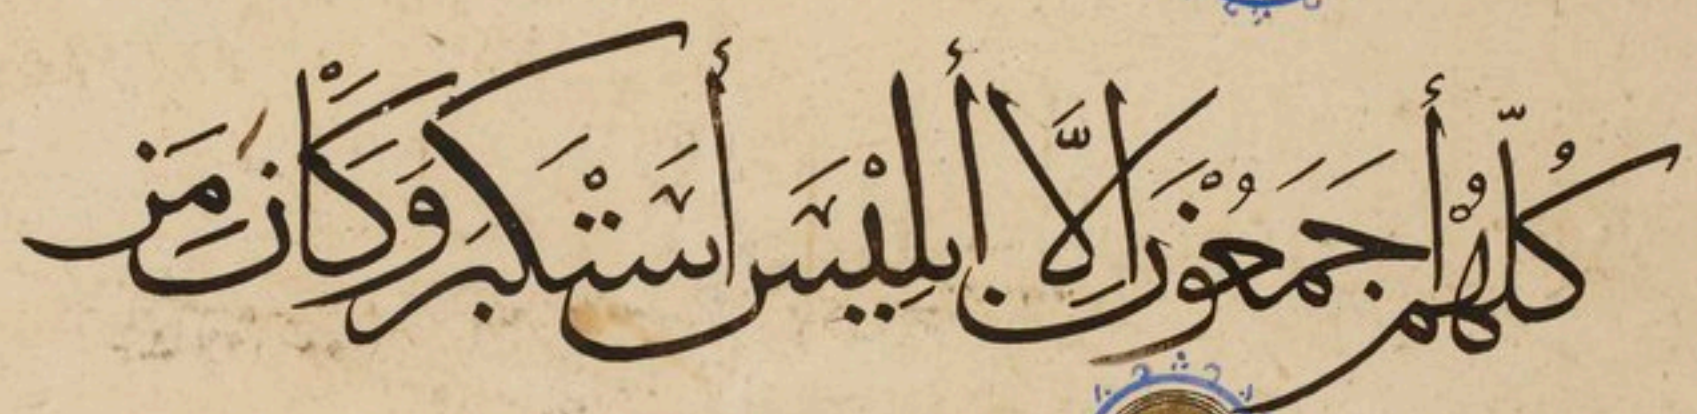 كُلُّهُمْ أَجْمَعُونَ إِلَّا إِبْلِيسَ اسْتَكْبَرَ وَكَانَ مِنَ